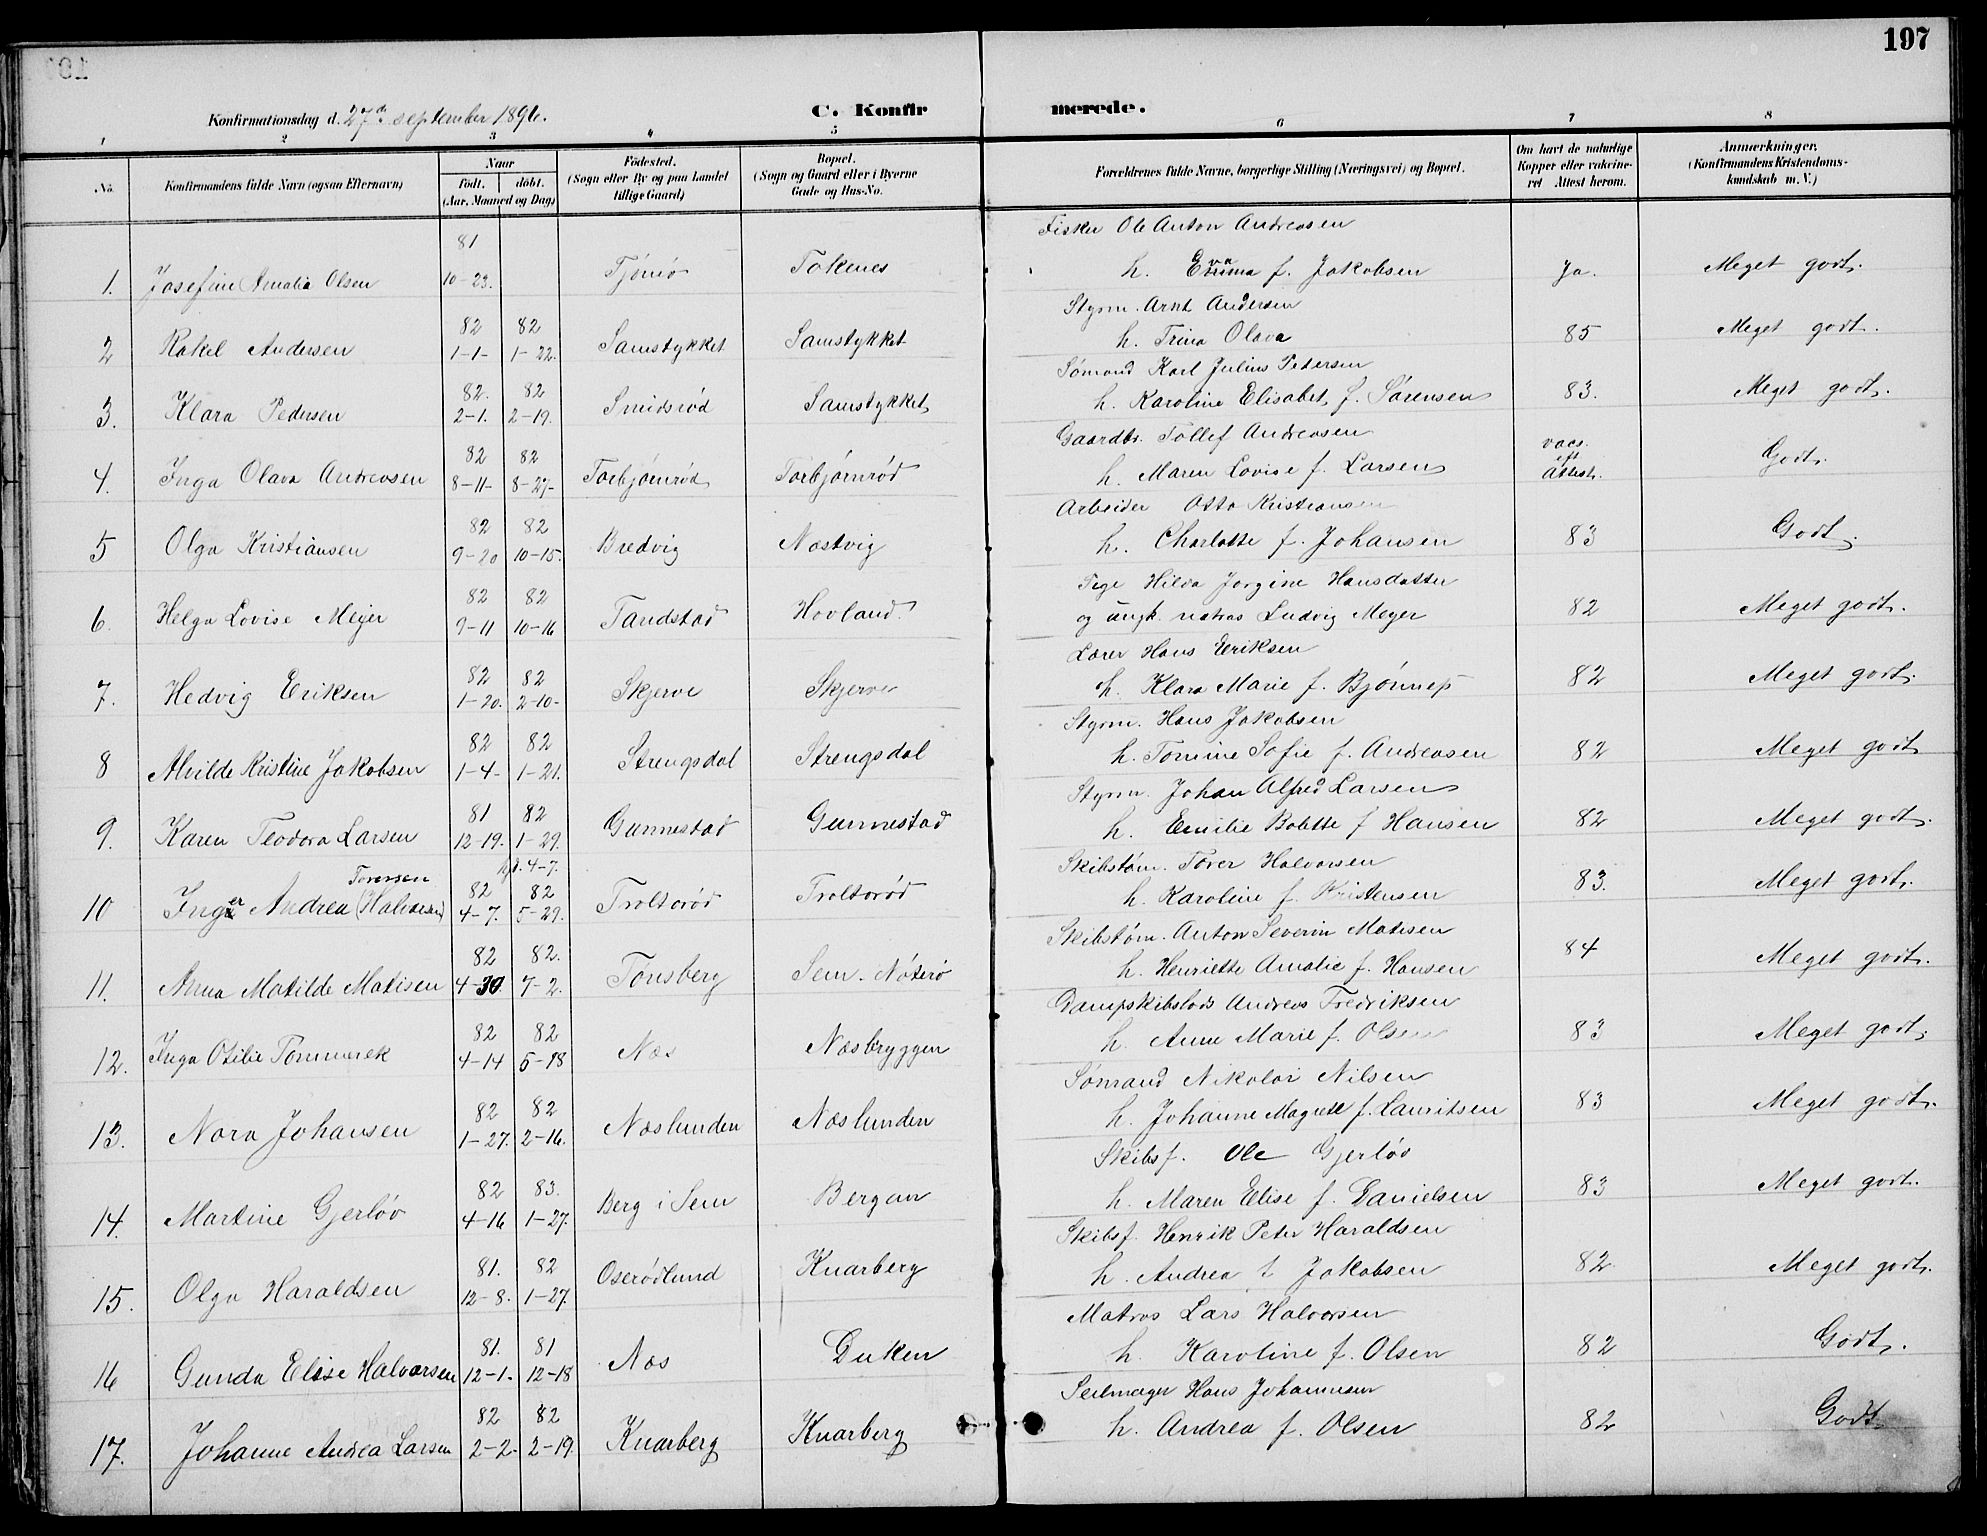 197
Konfirmationsdag d. 27de september 1896. C. Konfirmerede.
1 2 3 4 5 6 7 8
No. Konfirmandens fulde Navn (ogsaa Efternavn) Naar født. døbt. (Aar, Maaned og Dag) Fødested. (Sogn eller By og paa Landet tillige Gaard) Bopæl. (Sogn og Gaard eller i Byerne Gade og Hus-No. Forældrenes fulde Navne, borgerlige Stilling (Næringsvei) og Bopæl. Om havt de naturlige Kopper eller vakcineret Attest herom. Anmærkninger. (Konfirmandens Kristendomskundskab m. V.)
81 Fisker Ole Anton Andreasen
1. Josefine Amalia Olsen 10-23. Tjømø Tokenes h. Emma f. Jakobsen Ja. Meget godt.
82 82 Styrm. Arnt Andersen
2 Rakel Andersen 1-1- 1-22. Samstykket Samstykket h. Trina Olava 85 Meget godt.
82. 82 Sømand Karl Julius Petersen
3. Klara Pedersen 2-1. 2-19. Smidsrød Samstykket h. Karoline Elisabet f. Sørensen 83. Meget godt.
82 82 Gaardbr. Tollef Andreasen
4. Inga Olava Andreasen 8-11- 8-27- Torbjørnrød Torbjørnrød h. Maren Lovise f. Larsen vacs. Attest. Godt.
82 82 Arbeider Otto Kristiansen
5 Olga Kristiansen 9-20 10-15. Bredvig Næstvig h. Charlotte f. Johansen 83 Godt.
82 82 Pige Hilda Jorgine Hansdatter
6. Helga Lovise Meyer 9-11 10-16 Tandstad Hovland og ungk. matros Ludvig Meyer 82 Meget godt.
82 82 Lærer Hans Eriksen
7. Hedvig Eriksen 1-20. 2-10- Skjerve Skjerve h. Klara Marie f. Bjønnes 82 Meget godt.
82 82 Styrm. Hans Jakobsen
8 Alvilde Kristine Jakobsen 1-4- 1-21. Strengsdal Strengsdal h. Tomine Sofie f. Andreasen 82 Meget godt
81 82 Styrm. Johan Alfred Larsen
9. Karen Teodora Larsen 12-19. 1-29. Gunnestad Gunnestad h. Emilie Bolette f Hansen 82 Meget godt.
Toversen 82 4-7. 82 Skibstøm. Tover Halvorsen
10 Inger Andrea (Halvorsen) 4-7. 5-29. Troltorød Troltorød h. Karoline f. Kristensen 83. Meget godt.
82 82. Skibstøm. Anton Severin Matisen
11. Anna Matilde Matisen 4-30 7-2. Tønsberg Sem. Nøterø h. Henriette Amalie f. Hansen 84 Meget godt.
82 82 Dampskibslods Andreas Fredriksen
12. Inga Otilie Tommerek 4-14 5-18 Næs Næsbryggen h. Anne Marie f. Olsen 83 Meget godt.
82 82 Sømand Nikolai Nilsen
13. Nora Johansen 1-27. 2-16. Næslunden Næslunden h. Johanne Magrete f. Lauritsen 83 Meget godt.
82 83. Skibsf. Ole Gjerløv
14. Martine Gjerløv 4-16 1-27. Berg i Sem Bergan h. Maren Elise f. Danielsen 83 Meget godt.
81. 82 Skibsf. Henrik Peter Haraldsen
15. Olga Haraldsen 12-8. 1-27. Oserødlund Knarberg h. Andrea f Jakobsen 82 Meget godt.
81. 81 Matros Lars Halvorsen
16 Gunda Elise Halvorsen 12-1. 12-18 Næs Duken h. Karoline f. Olsen 82 Godt.
82 82 Seilmager Hans Johannesen
17. Johanne Andrea Larsen 2-2- 2-19. Knarberg Knarberg h. Andrea f. Olsen 82 Godt